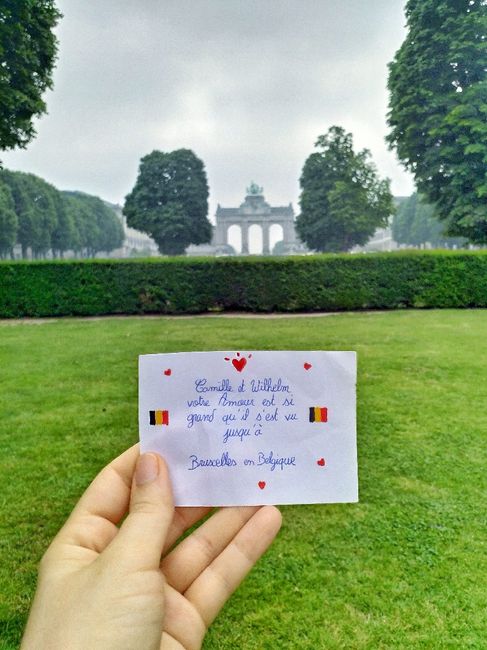 Camille et Wilhelm
votre Amour est si
grand qu'il s'est vu
jusqu'à
Bruxelles en Belgique